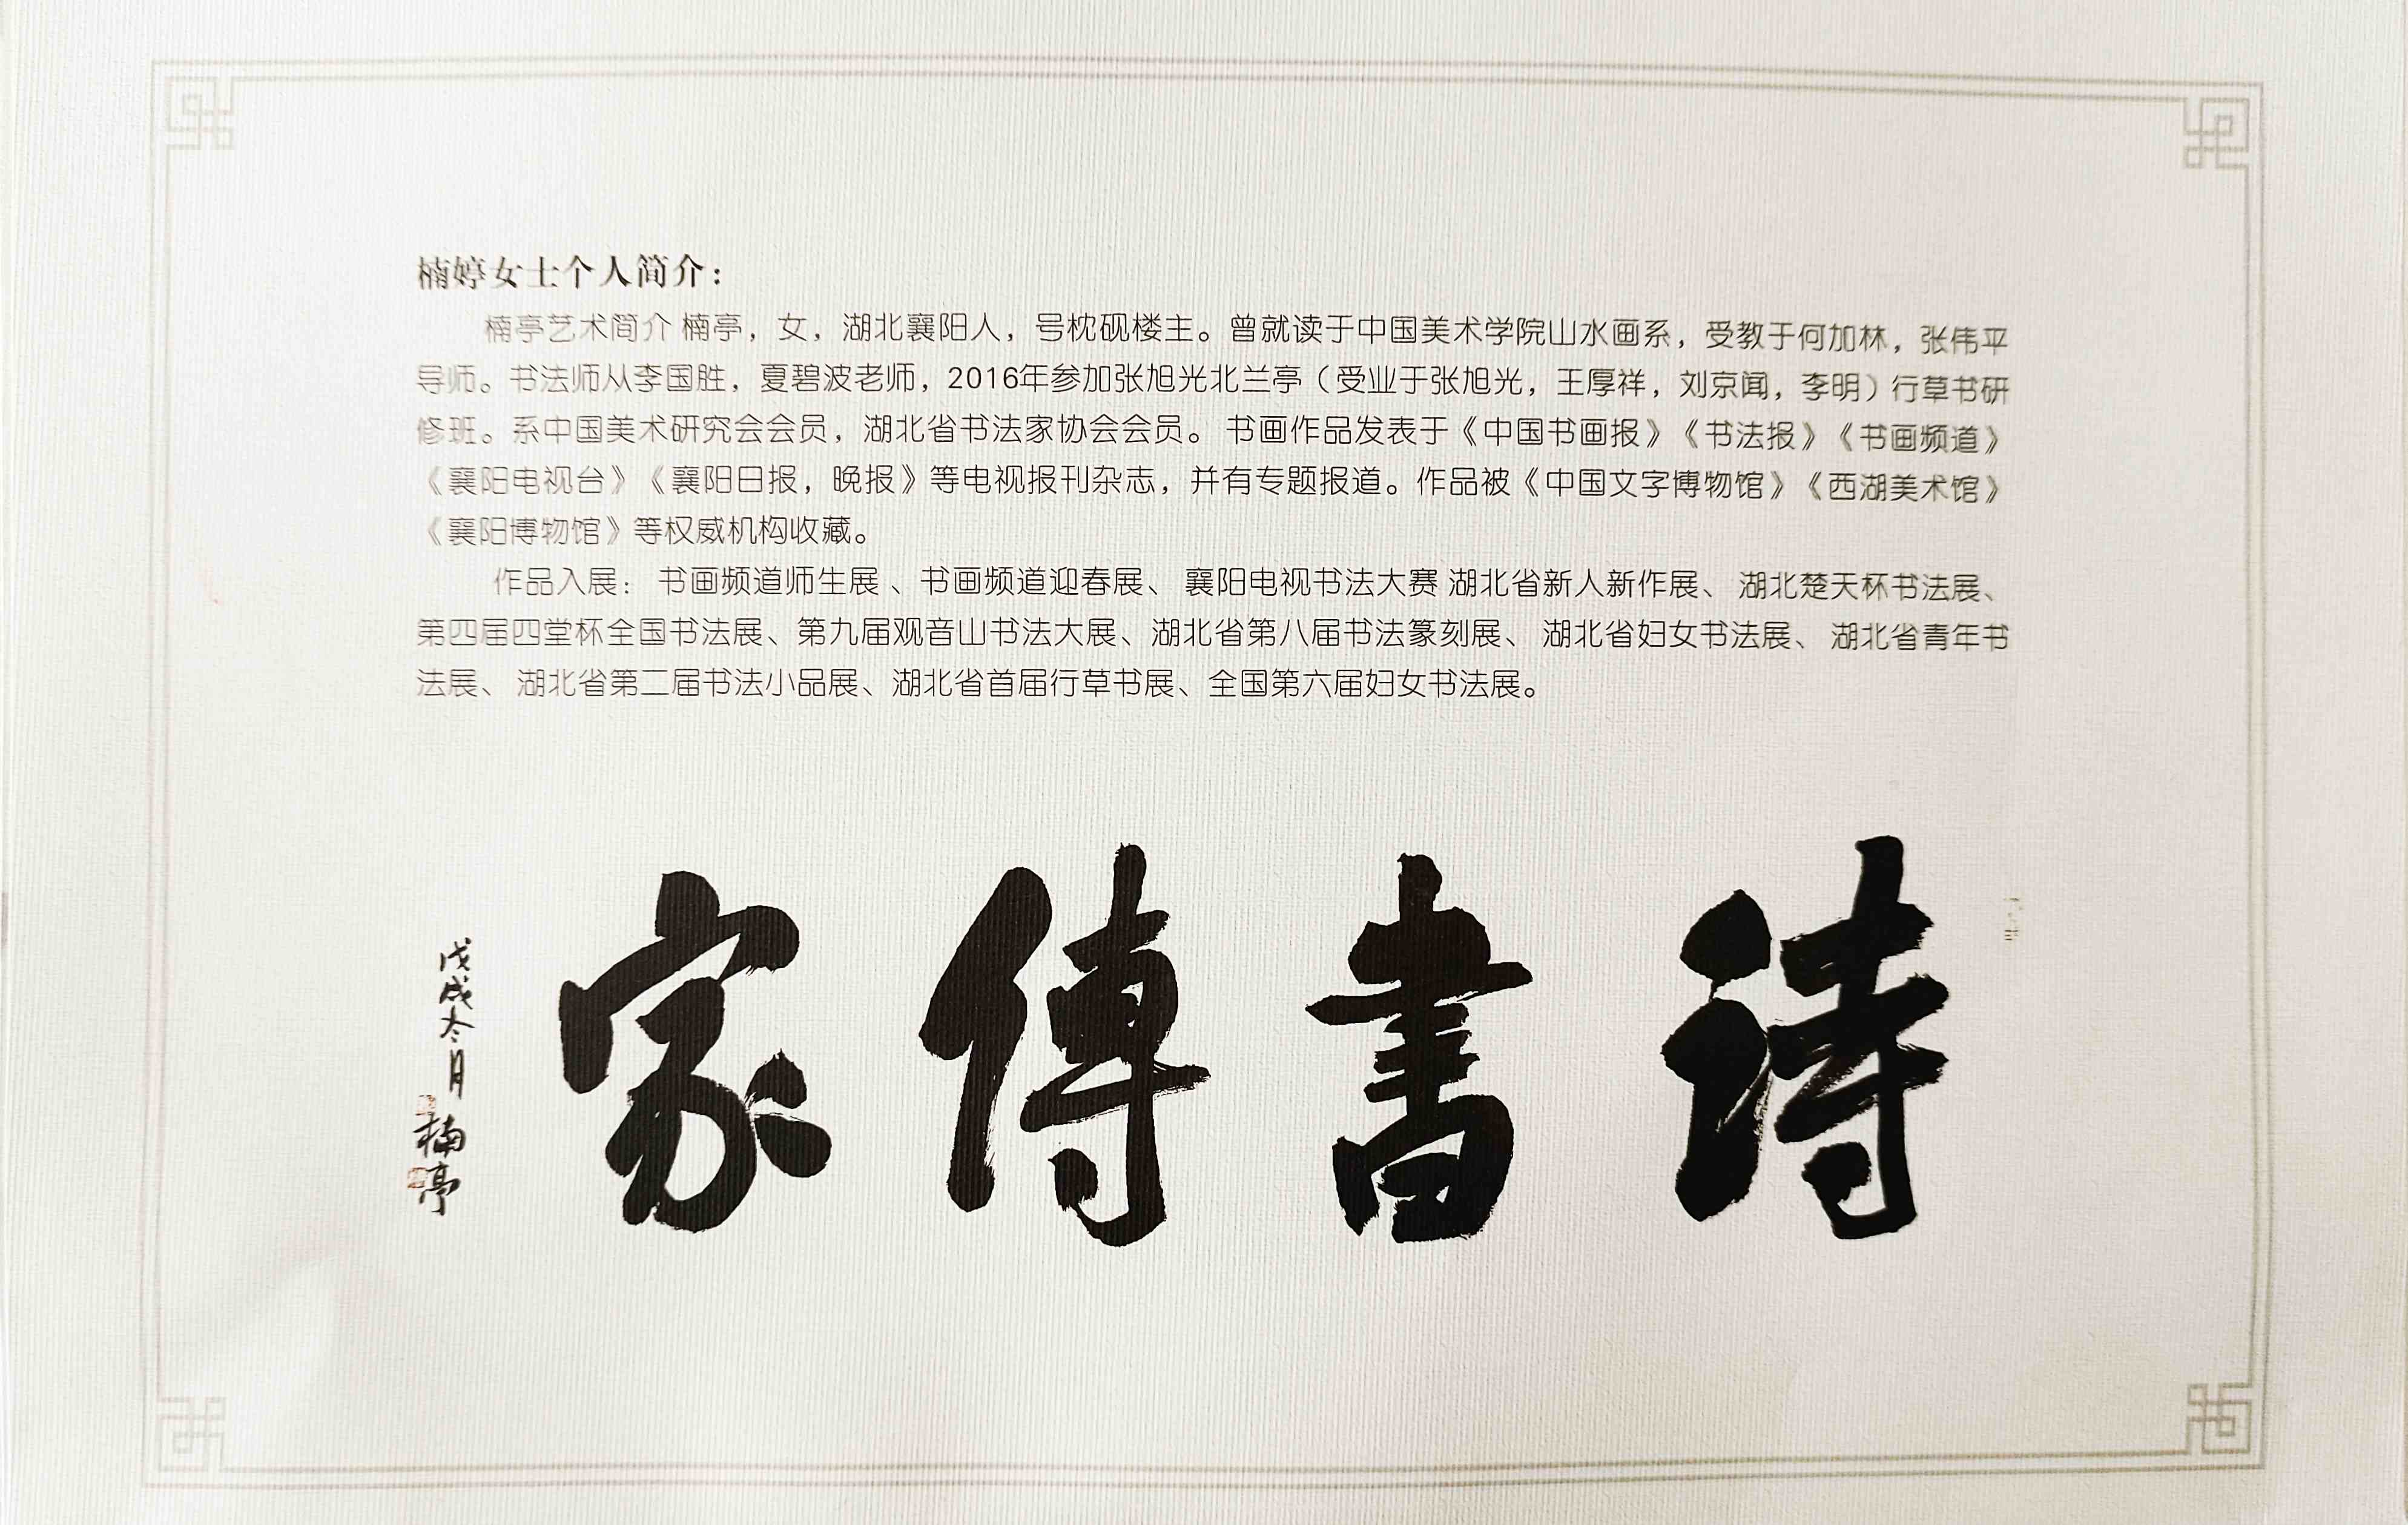 楠婷女士个人简介：
楠亭艺术简介 楠亭，女，湖北襄阳人，号枕砚楼主。曾就读于中国美术学院山水画系，受教于何加林，张伟平
导师。书法师从李国胜，夏碧波老师，2016年参加张旭光北兰亭（受业于张旭光，王厚祥，刘京闻，李明）行草书研
修班。系中国美术研究会会员，湖北省书法家协会会员。 书画作品发表于《中国书画报》《书法报》《书画频道》
《襄阳电视台》《襄阳日报，晚报》等电视报刊杂志，并有专题报道。作品被《中国文字博物馆》《西湖美术馆》
《襄阳博物馆》等权威机构收藏。
作品入展： 书画频道师生展 、书画频道迎春展、 襄阳电视书法大赛 湖北省新人新作展、 湖北楚天杯书法展、
第四届四堂杯全国书法展、第九届观音山书法大展、湖北省第八届书法篆刻展、 湖北省妇女书法展、 湖北省青年书
法展、 湖北省第二届书法小品展、湖北省首届行草书展、全国第六届妇女书法展。
詩書傳家
戊戌冬月
楠亭